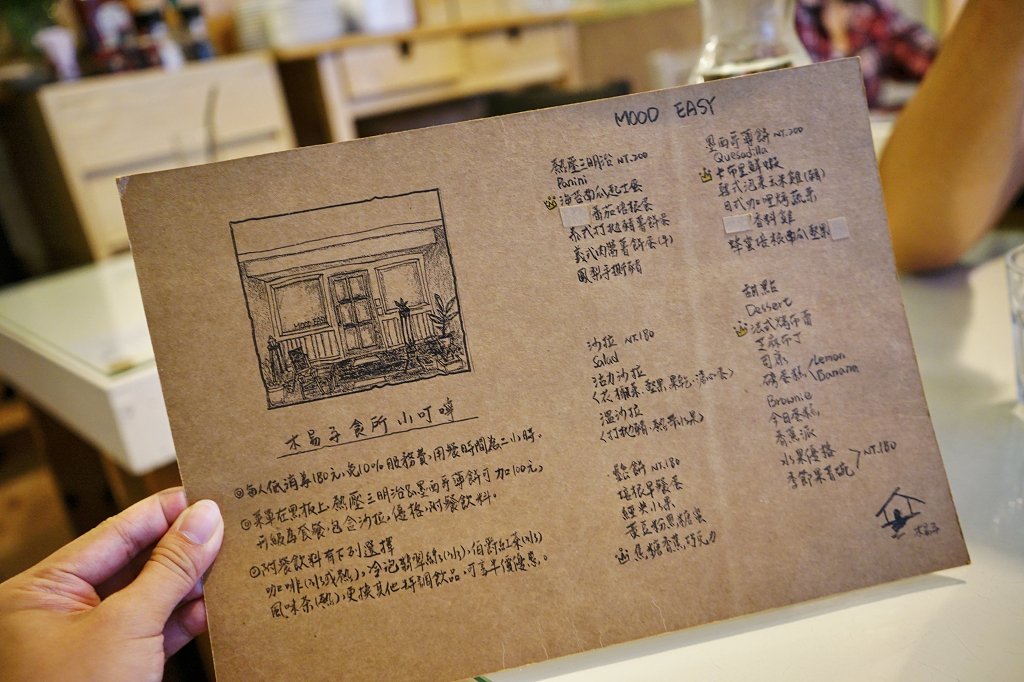 MOOD EASY
木易子食所 小叮嚀
每人低消為180元,免10%服務費,用餐時間為二小時。
菜單在黑板上,熱壓三明治&墨西哥薄餅可加100元,
升級為套餐,包含沙拉,優格,附餐飲料。
附餐飲料有下列選擇
咖啡(冰或熱),冷泡翡翠綠(冰),伯爵紅茶(冰)
風味茶(熱),更換其他特調飲品,可享半價優惠。
熱壓三明治 NT.200
Panini
海苔南瓜起士蛋
番茄培根蛋
泰式打拋豬薯餅蛋
義式肉醬薯餅蛋(牛)
鳳梨手撕豬
沙拉 NT.180
Salad
活力沙拉
溫沙拉
鬆餅 NT.180
培根早餐蛋
經典水果
黃豆粉黑糖蜜
焦糖香蕉巧克力
墨西哥薄餅 NT.200
Quesadilla
卡布里鮮蝦
韓式泡菜玉米雞(豬)
日式咖哩烤蔬菜
香料雞
蜂蜜培根南瓜堅果
甜點
Dessert
法式烤布蕾
芝麻布丁
司康
磅蛋糕 Lemon
Banana
Brownie
今日蛋糕
香蕉派
水果優格
季節果昔碗 NT.180
木易子